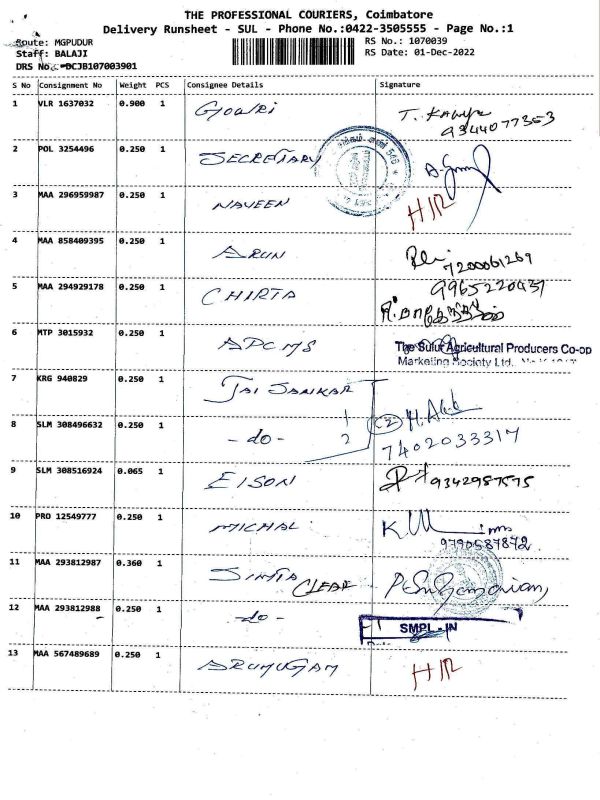 THE PROFESSIONAL COURIERS, Coimbatore
Delivery Runsheet - SUL - Phone No.:0422-3505555 - Page No.:1
Route: MGPUDUR
RS No.: 1070039
Staff: BALAJI
RS Date: 01-Dec-2022
DRS No.: DCJB107003901
S No Consignment No Weight PCS Consignee Details Signature
1 VLR 1637032 0.900 1 Gowri T. 9344077353
2 POL 3254496 0.250 1 SECRETARY
3 MAA 296959987 0.250 1 NAVEEN H/R
4 MAA 858409395 0.250 1 ARUN 7200061269
5 MAA 294929178 0.250 1 CHIRTA 9965220437
6 MTP 3015932 0.250 1 APCMS The Sulur Agricultural Producers Co-op
Marketing Society Ltd.,
7 KRG 940829 0.250 1 JAI SANKAR 1
8 SLM 308496632 0.250 1 -do- 2 (2) 7402033317
9 SLM 308516924 0.065 1 EISON 9342987575
10 PRO 12549777 0.250 1 MICHAL 9790587872
11 MAA 293812987 0.360 1 SIMTA CLEAR
12 MAA 293812988 0.250 1 -do- SMPL - IN
13 MAA 567489689 0.250 1 ARUMUGAM H/R